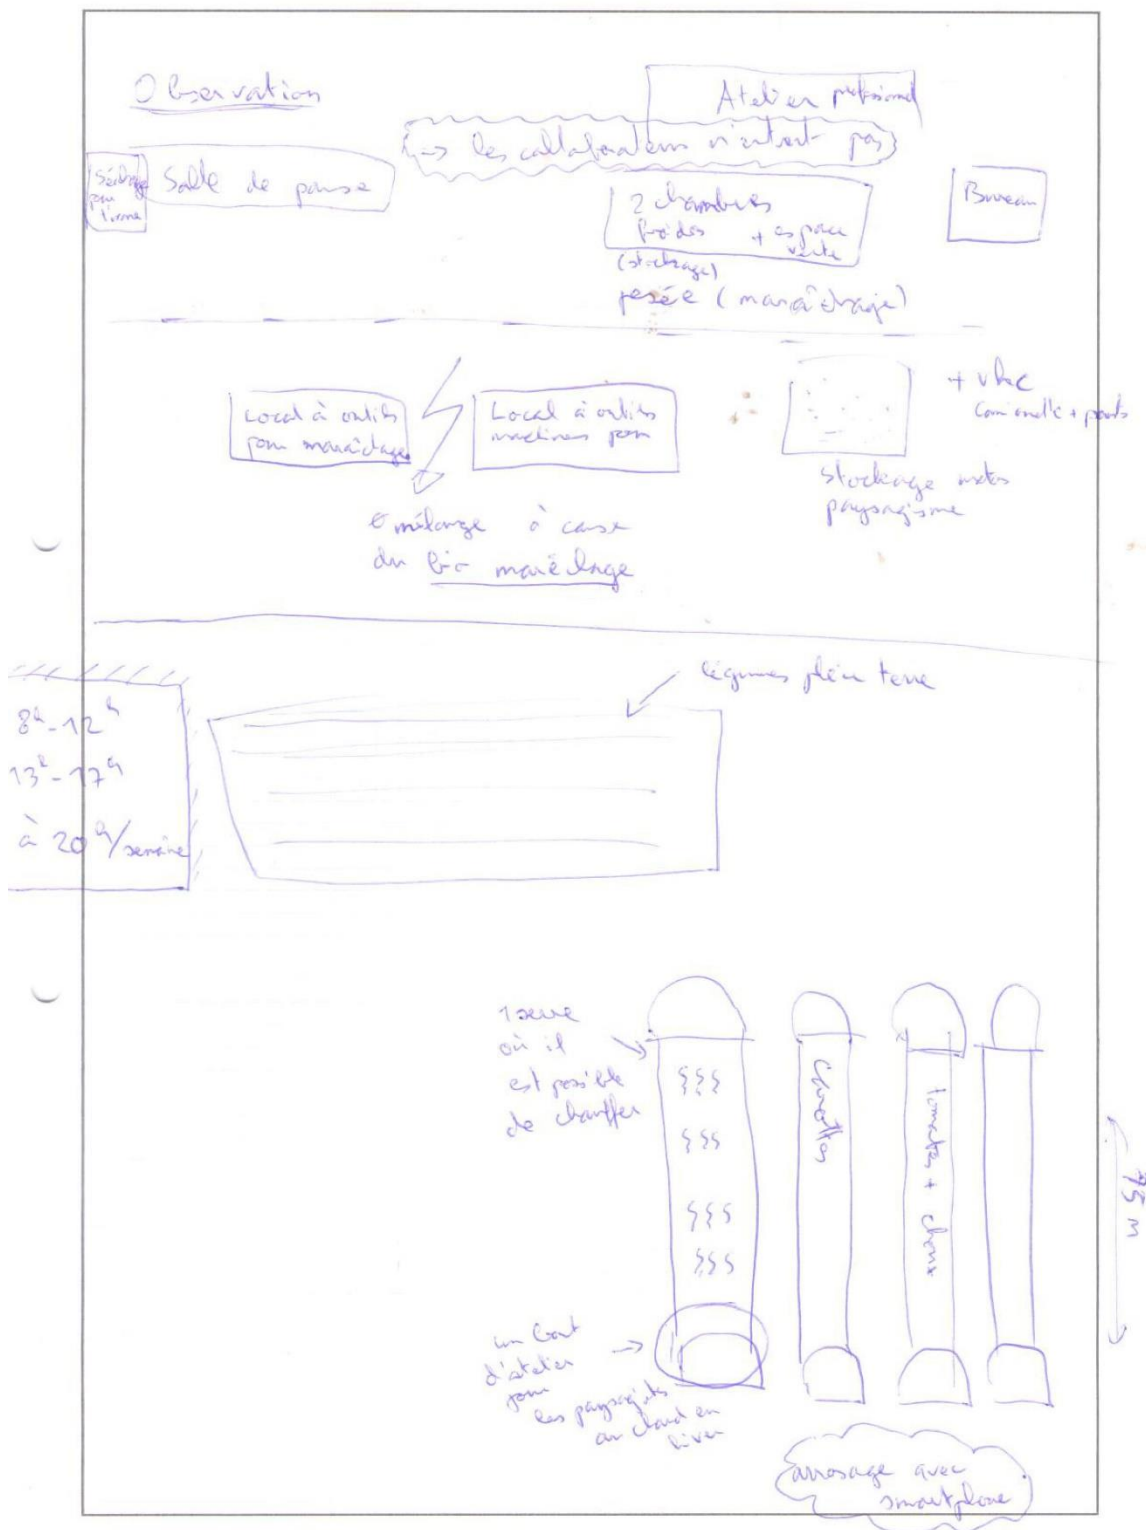 Observation
Atelier professionnel
→ les collaborateurs n'entrent pas
Séchage
pour
Salle de pause
2 chambres
froides + espace
vente
(stockage)
pesée (maraîchage)
Bureau
Local à outils
pour maraîchage
Local à outils
machines pour
+ véhic
camionnette +
stockage matos
paysagisme
mélange à cause
du bio maraîchage
légumes plein terre
8h-12h
13h-17h
à 20h/semaine
1 serre
où il
est possible
de chauffer
carottes
tomates + choux
75 m
un bout
d'atelier
pour
les paysagistes
au chaud en
hiver
arrosage avec
smartphone